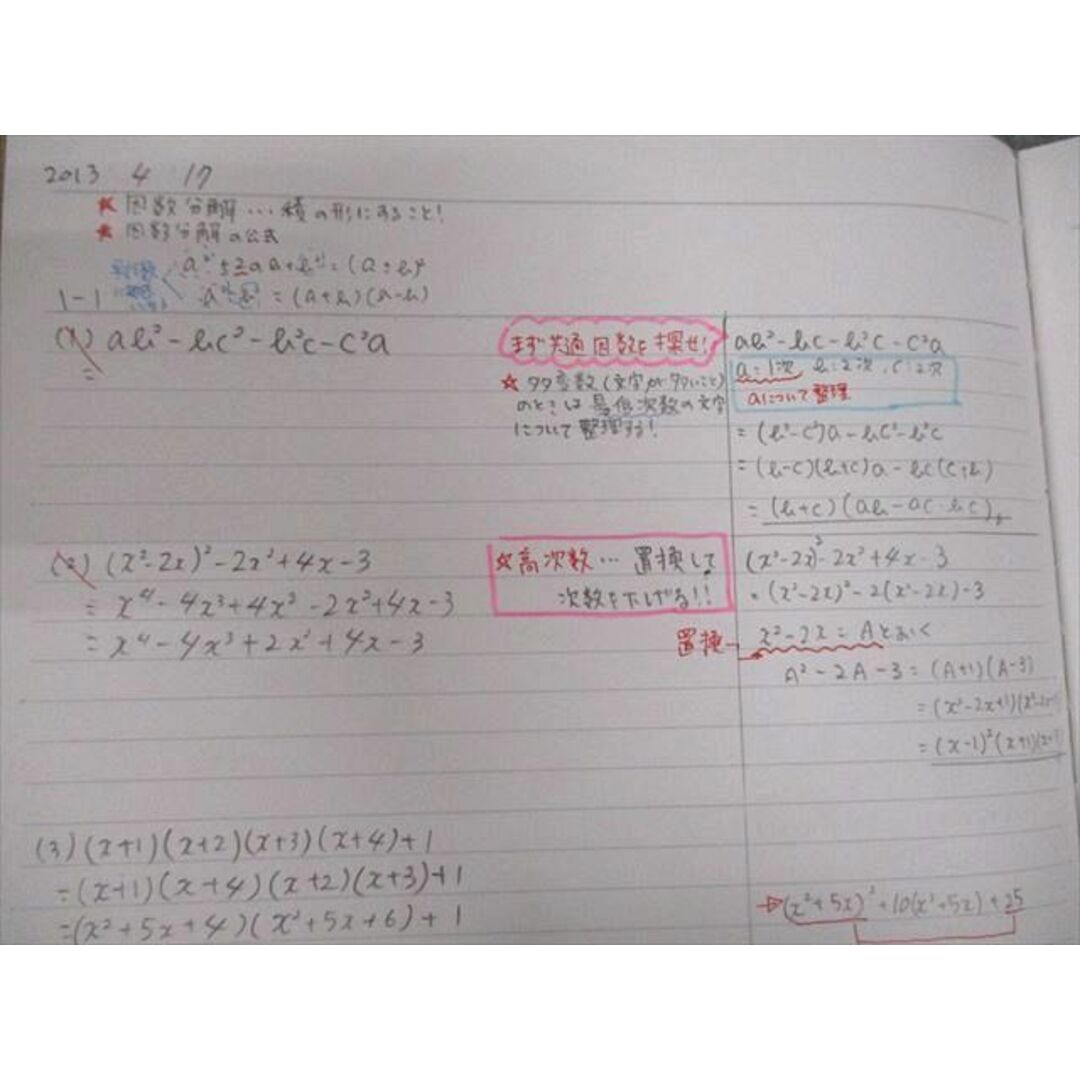 2013 4 17
★ 因数分解…積の形にすること!
★ 因数分解の公式
a²±2ab+b²=(a±b)²
a²-b²=(a+b)(a-b)
1-1
(1) ab²-bc²-b²c-c²a
=
まず共通因数を探せ!
☆ 多変数(文字が多いこと)
のときは最低次数の文字
について整理する!
ab²-bc-b²c-c²a
a:1次 b:2次, c:2次
aについて整理
=(b²-c²)a-bc²-b²c
=(b-c)(b+c)a-bc(c+b)
=(b+c)(ab-ac-bc)
(2) (x²-2x)²-2x²+4x-3
=x⁴-4x³+4x²-2x²+4x-3
=x⁴-4x³+2x²+4x-3
☆高次数…置換して
次数を下げる!!
(x²-2x)²-2x²+4x-3
=(x²-2x)²-2(x²-2x)-3
置換
x²-2x=Aとおく
A²-2A-3=(A+1)(A-3)
=(x²-2x+1)(x²-2x-3)
=(x-1)²(x+1)(x-3)
(3) (x+1)(x+2)(x+3)(x+4)+1
=(x+1)(x+4)(x+2)(x+3)+1
=(x²+5x+4)(x²+5x+6)+1
(x²+5x)²+10(x²+5x)+25